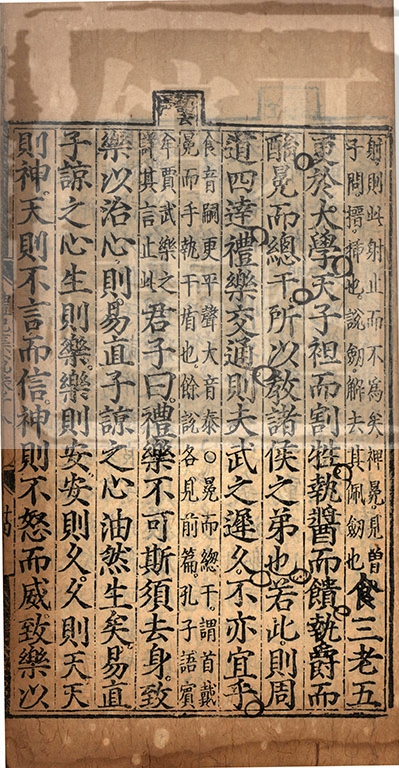 射則此射止而不爲矣裨冕見曾
子問搢插也說劔解去其佩劔也
食三老五
更於大學天子袒而割牲執醬而饋執爵而
酳冕而總干所以敎諸侯之弟也若此則周
道四達禮樂交通則夫武之遲久不亦宜乎
食音嗣更平聲大音泰○冕而緫干謂首戴
冕而手執干盾也餘說各見前篇孔子語賔
牟賈武樂之
詳其言止此
君子曰禮樂不可斯須去身致
樂以治心則易直子諒之心油然生矣易直
子諒之心生則樂樂則安安則久久則天天
則神天則不言而信神則不怒而威致樂以